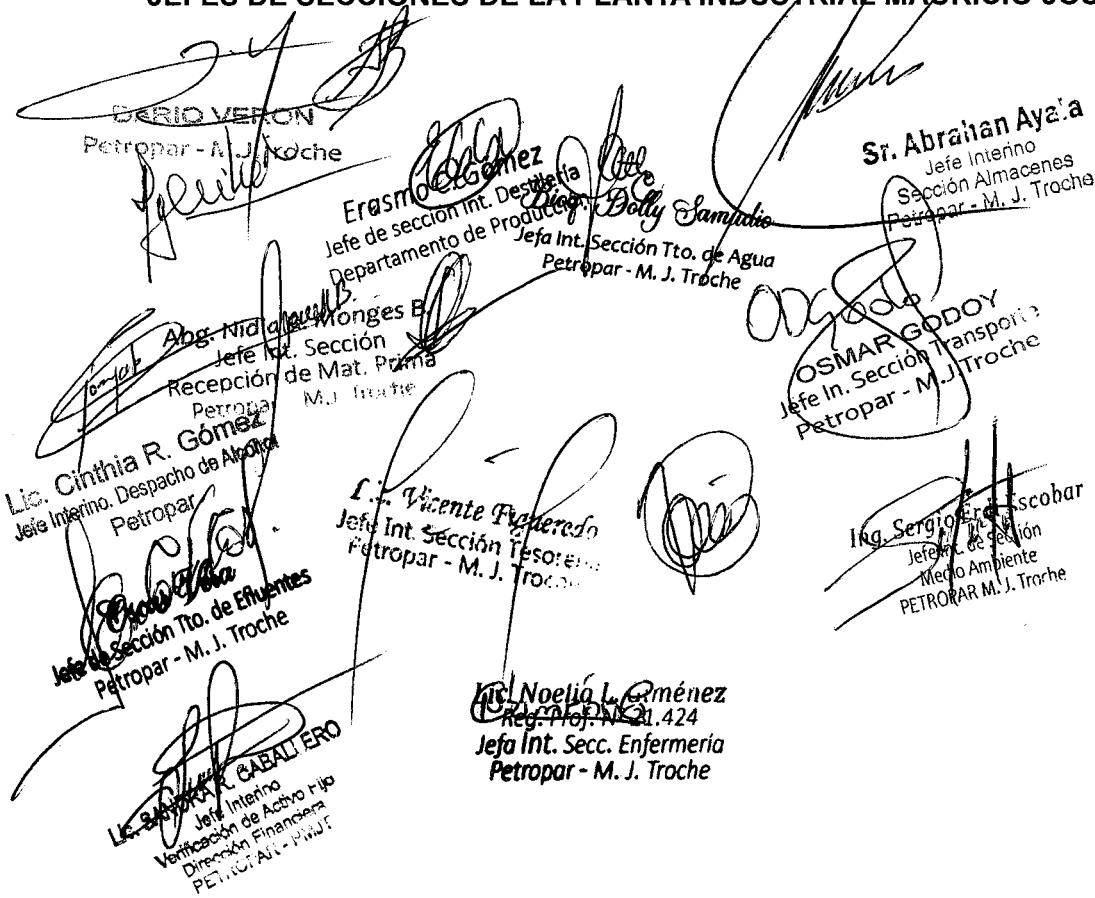 JEFES DE SECCIONES DE LA PLANTA INDUSTRIAL MAURICIO
DARIO VERON
Petropar - M.J. Troche
Erasmo C. Gómez
Jefe de sección Int. Destilería
Departamento de Producción
Dolly Samudio
Jefa Int. Sección Tto. de Agua
Petropar - M. J. Troche
Sr. Abrahan Ayala
Jefe Interino
Sección Almacenes
Petropar - M. J. Troche
Abg. Nidia Monges B.
Jefe Int. Sección
Recepción de Mat. Prima
Petropar M.J. Troche
OSMAR GODOY
Jefe In. Sección Transporte
Petropar - M.J. Troche
Lic. Cinthia R. Gómez
Jefe Interino. Despacho de Alcohol
Petropar
Lic. Vicente Figueredo
Jefe Int. Sección Tesorería
Petropar - M. J. Troche
Ing. Sergio Escobar
Jefe Int. de Sección
Medio Ambiente
PETROPAR M. J. Troche
Jefe de Sección Tto. de Efluentes
Petropar - M. J. Troche
Lic. Noelia L. Giménez
Reg. Prof. N° 21.424
Jefa Int. Secc. Enfermería
Petropar - M. J. Troche
Lic. SANDRA R. CABALLERO
Jefe Interino
Verificación de Activo Fijo
Dirección Financiera
PETROPAR - PMJT